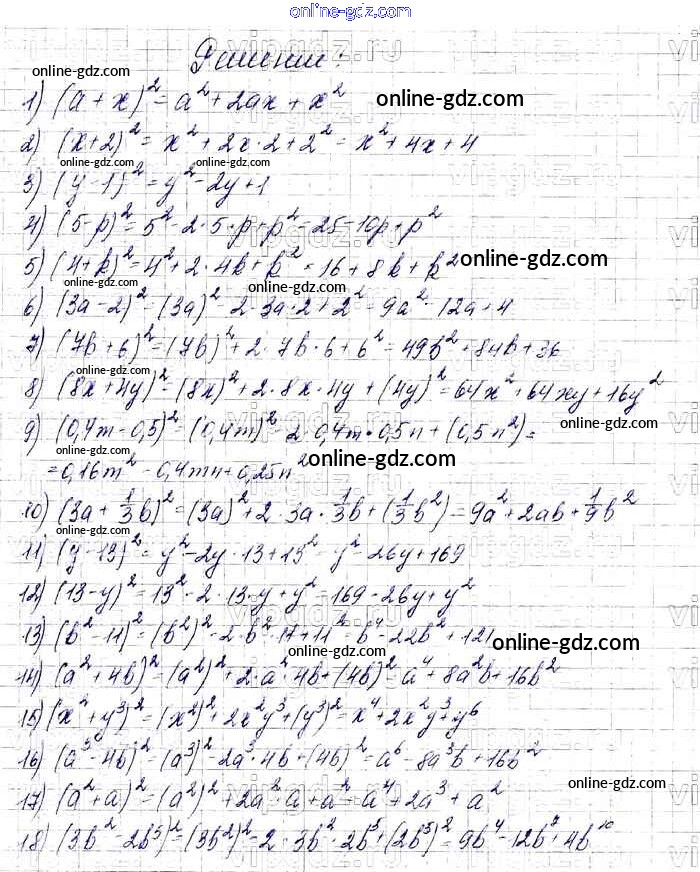 online-gdz.com
Решение:
online-gdz.com
1) (a + x)² = a² + 2ax + x² online-gdz.com
2) (x+2)² = x² + 2x·2 + 2² = x² + 4x + 4
online-gdz.com
3) (y-1)² = y² - 2y + 1
4) (5-p)² = 5² - 2·5·p + p² = 25 - 10p + p²
online-gdz.com
5) (4+k)² = 4² + 2·4k + k² = 16 + 8k + k²
online-gdz.com
6) (3a-2)² = (3a)² - 2·3a·2 + 2² = 9a² - 12a + 4
7) (7b+6)² = (7b)² + 2·7b·6 + 6² = 49b² + 84b + 36
online-gdz.com
8) (8x+4y)² = (8x)² + 2·8x·4y + (4y)² = 64x² + 64xy + 16y²
online-gdz.com
9) (0,4m-0,5)² = (0,4m)² - 2·0,4m·0,5n + (0,5n²) =
= 0,16m² - 0,4mn + 0,25n² online-gdz.com
online-gdz.com
10) (3a + 1/3b)² = (3a)² + 2·3a·1/3b + (1/3b²) = 9a² + 2ab + 1/9b²
online-gdz.com
11) (y-13)² = y² - 2y·13 + 13² = y² - 26y + 169
12) (13-y)² = 13² - 2·13·y + y² = 169 - 26y + y²
13) (b²-11)² = (b²)² - 2·b²·11 + 11² = b⁴ - 22b² + 121
online-gdz.com
online-gdz.com
14) (a² + 4b)² = (a²)² + 2·a²·4b + (4b)² = a⁴ + 8a²b + 16b²
15) (x² + y³)² = (x²)² + 2x²y³ + (y³)² = x⁴ + 2x²y³ + y⁶
online-gdz.com
16) (a³ - 4b)² = (a³)² - 2a³·4b + (4b)² = a⁶ - 8a³b + 16b²
online-gdz.com
17) (a² + a)² = (a²)² + 2a²·a + a² = a⁴ + 2a³ + a²
online-gdz.com
18) (3b² - 2b⁵)² = (3b²)² - 2·3b²·2b⁵ + (2b⁵)² = 9b⁴ - 12b⁷ + 4b¹⁰